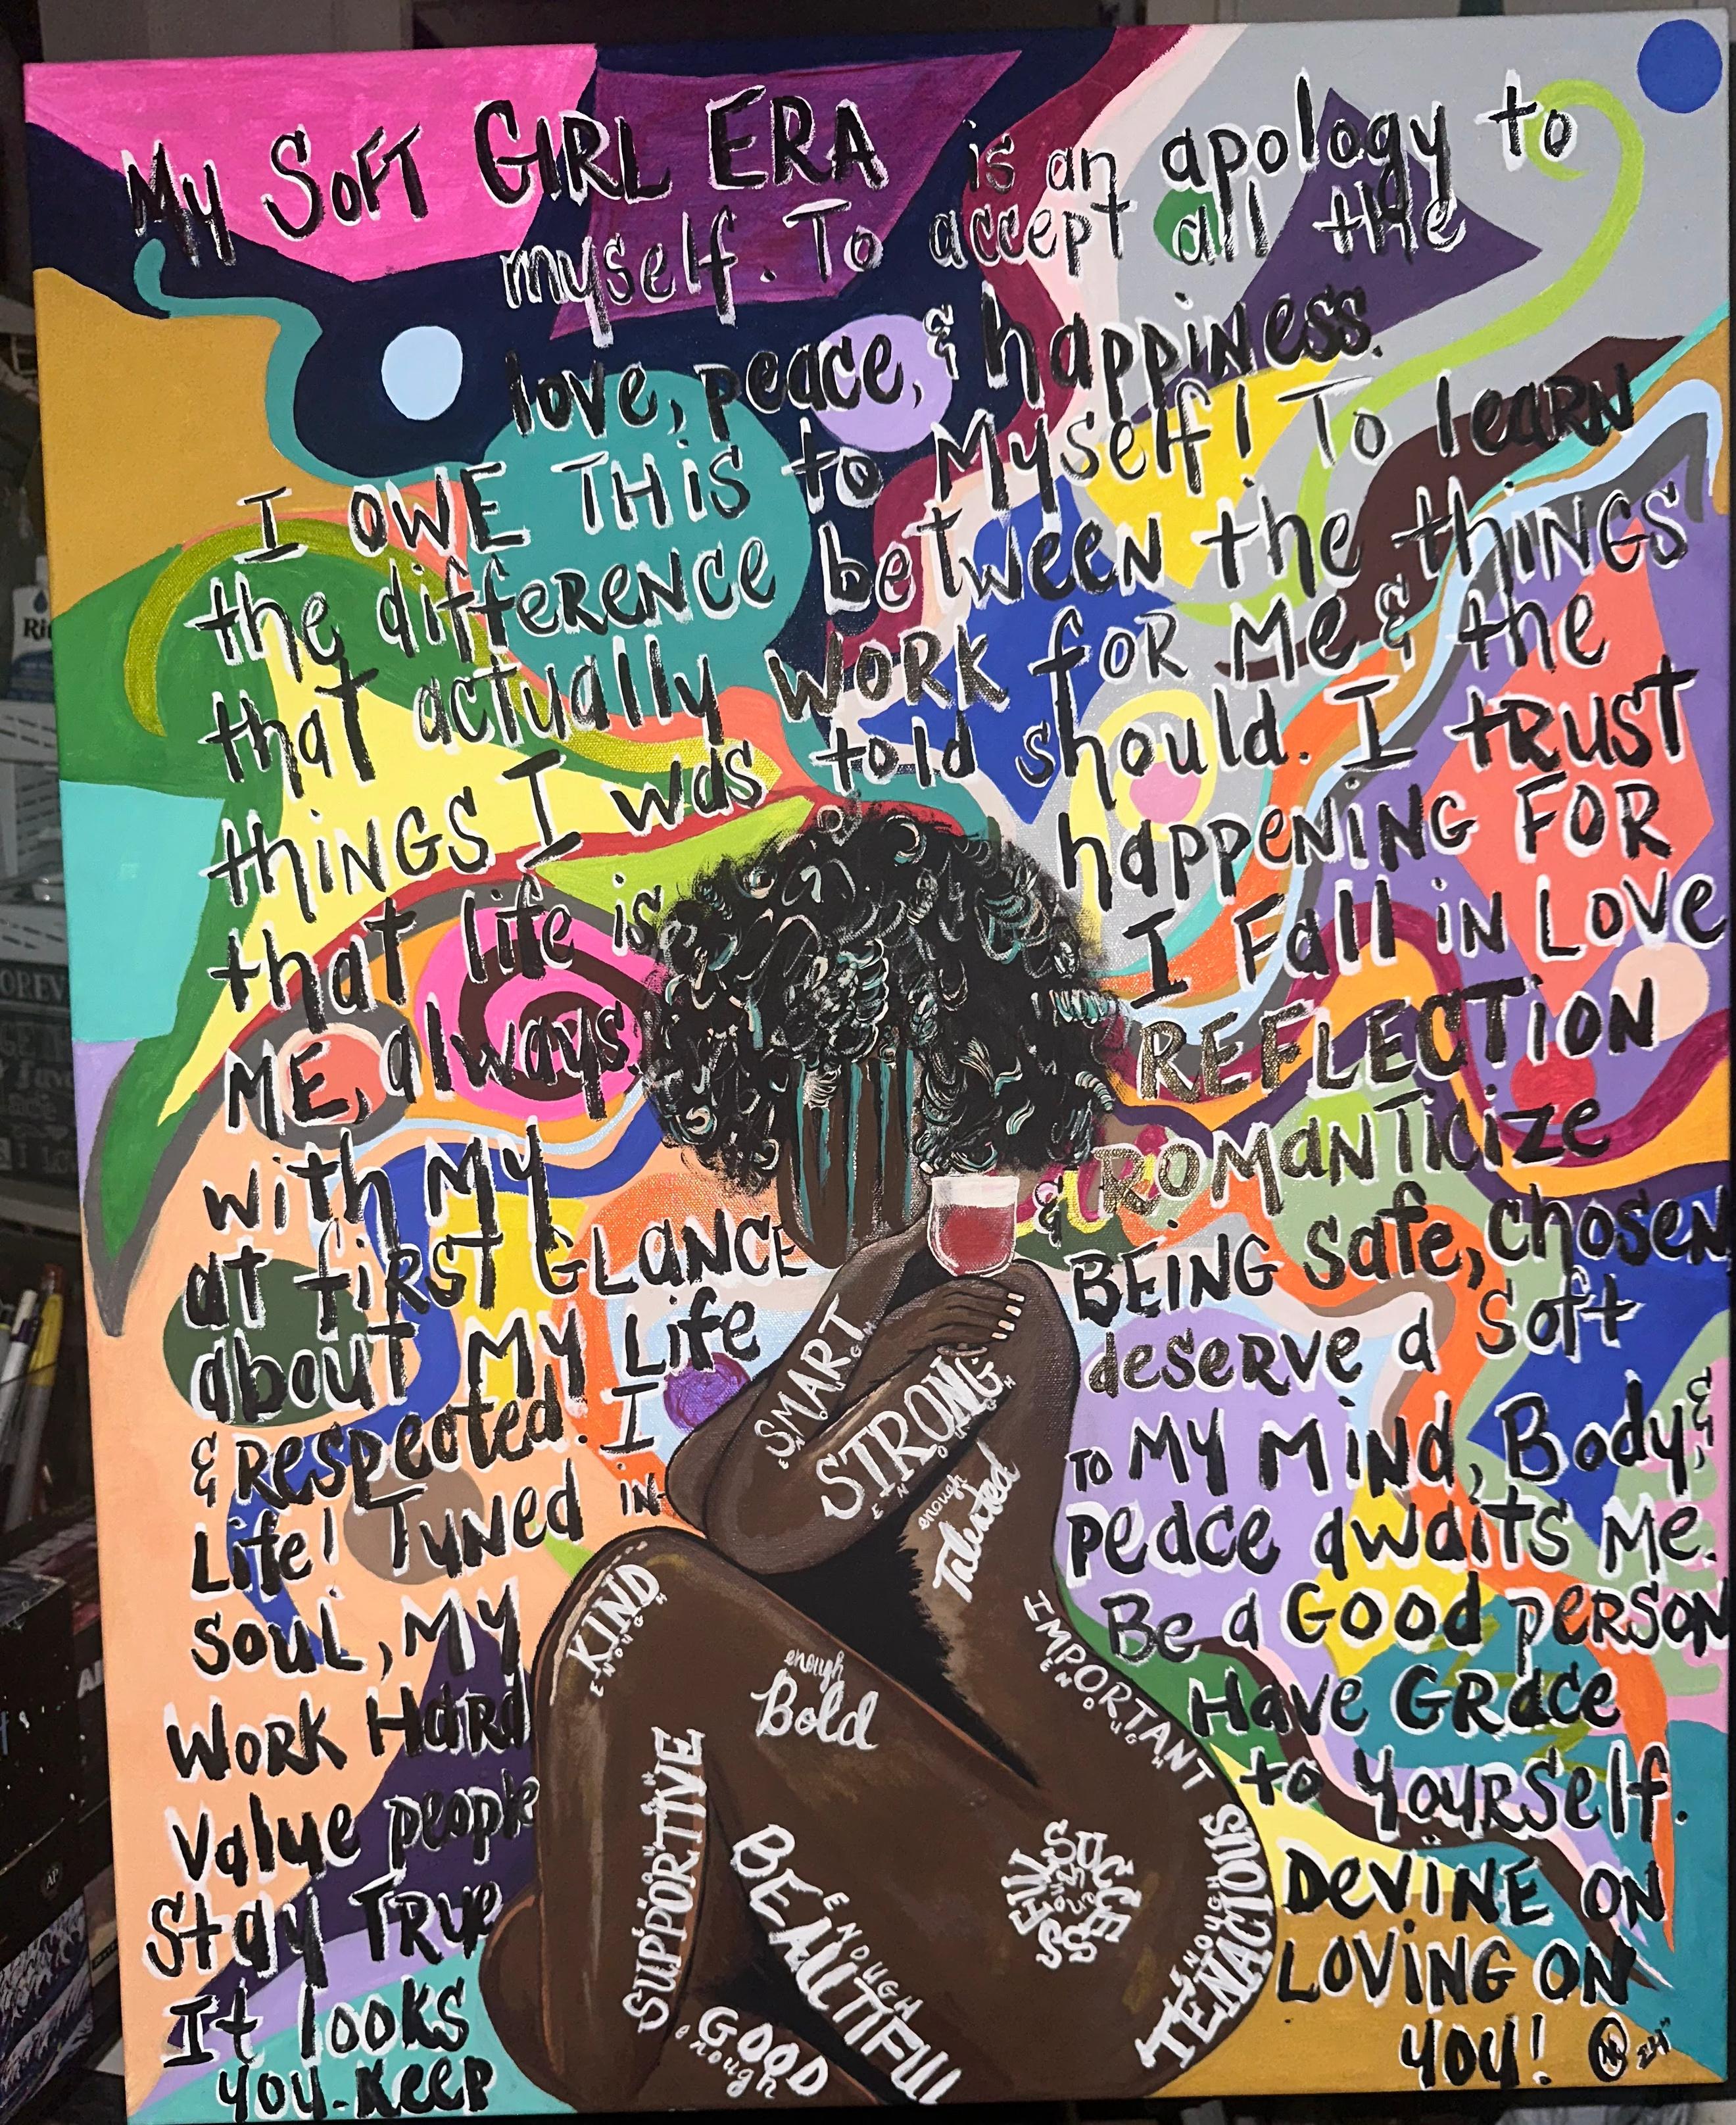 My SoFT GIRL ERA is an apology to
myself. To accept all the
love, peace, & happiness.
I OWE THiS to Myself! To leaRN
the diffeRENCe betweeN the thiNGS
that actually WORK foR Me & the
thiNGS I was told should. I tRUST
that life is happeNiNG FOR
ME, always. I Fall iN Love
with My REFLECTiON
at fiRST GLaNCE & ROMaNTICize
about My Life BEING safe, choseN
& Respected. I deseRve a soft
Life! TuNed iN TO My MiNd, Body, &
soul, My peace awaits Me.
WoRK HaRd Be a Good peRSoN
Value people Have GRace
Stay TRue to YouRself.
It looks DeViNE ON
you. Keep LOViNG ON
you!
SMART
ENOUGH
STRONG
ENOUGH
enough
Talented
KIND
ENOUGH
enough
Bold
IMPORTANT
ENOUGH
SUPPORTIVE
BEAUTIFUL
ENOUGH
SUCCESSFUL
TENACIOUS
ENOUGH
GOOD
enough
Ri
OREV